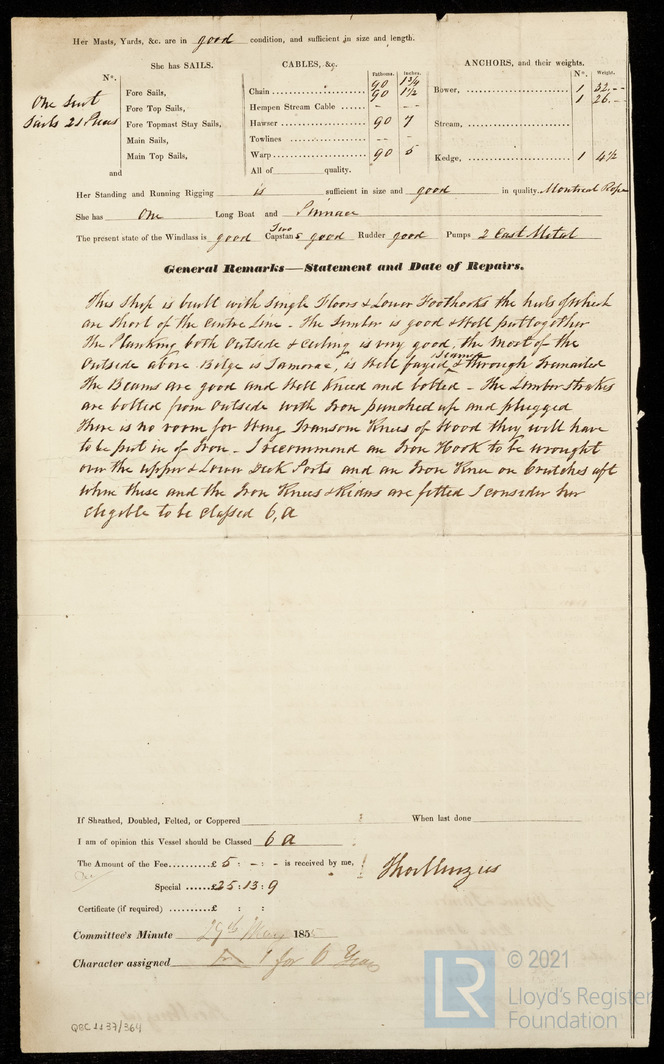 Her Masts, Yards, &c. are in good condition, and sufficient in size and length.
She has SAILS.
CABLES, &c.
ANCHORS, and their weights.
N°.
Fathoms.
Inches.
N°.
Weight.
One Suit
Sails 21 Pieces
Fore Sails,
Fore Top Sails,
Fore Topmast Stay Sails,
Main Sails,
Main Top Sails,
and
Chain 90 1 3/4
90 1 1/2
Hempen Stream Cable - -
Hawser 90 7
Towlines - -
Warp 90 5
All of quality.
Bower, 1 32.--
1 26.--
Stream,
Kedge, 1 4 1/2
Her Standing and Running Rigging is sufficient in size and good in quality. Montreal Rope
She has One Long Boat and Pinnace
The present state of the Windlass is good Two Capstans good Rudder good Pumps 2 Cast Metal
General Remarks—Statement and Date of Repairs.
This Ship is built with Single Floors & Lower Foothooks the heels of which
are short of the Centre Line - The Timber is good & Well put together
The Planking both Outside & Ceiling is very good, the most of the
Outside above Bilge is Tamarac, is Well fayed & through Treenailed
The Beams are good and Well Kneed and bolted - The Limber Strakes
are bolted from Outside with Iron punched up and plugged
there is no room for Wing Transom Knees of Wood they will have
to be put in of Iron - I recommend an Iron Hook to be wrought
over the upper & Lower Deck Ports and an Iron Knee on Crutches aft
when these and the Iron Knees & Riders are fitted I consider her
eligible to be classed 6, A
If Sheathed, Doubled, Felted, or Coppered
When last done
I am of opinion this Vessel should be Classed 6 A
The Amount of the Fee £ 5 : - : - is received by me,
Thos Menzies
Special £25 : 13 : 9
Certificate (if required) £ : :
Committee's Minute 29th May 1855
Character assigned 1 for 6 Years
QBC 1137/364
LR
© 2021
Lloyd's Register
Foundation